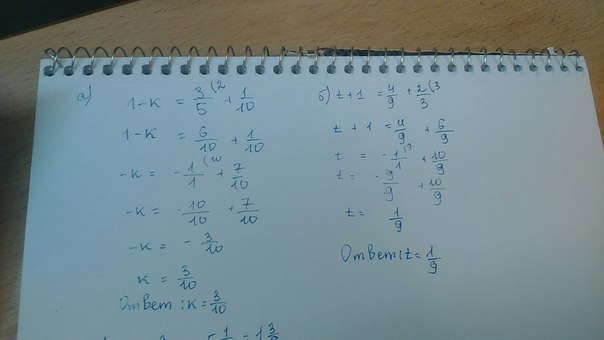 а)
1-к = 3/5 (2 + 1/10
1-к = 6/10 + 1/10
-к = -1/1 (10 + 7/10
-к = -10/10 + 7/10
-к = -3/10
к = 3/10
Ответ: к = 3/10
б) t+1 = 4/9 + 2/3 (3
t+1 = 4/9 + 6/9
t = -1/1 (9 + 10/9
t = -9/9 + 10/9
t = 1/9
Ответ: t = 1/9